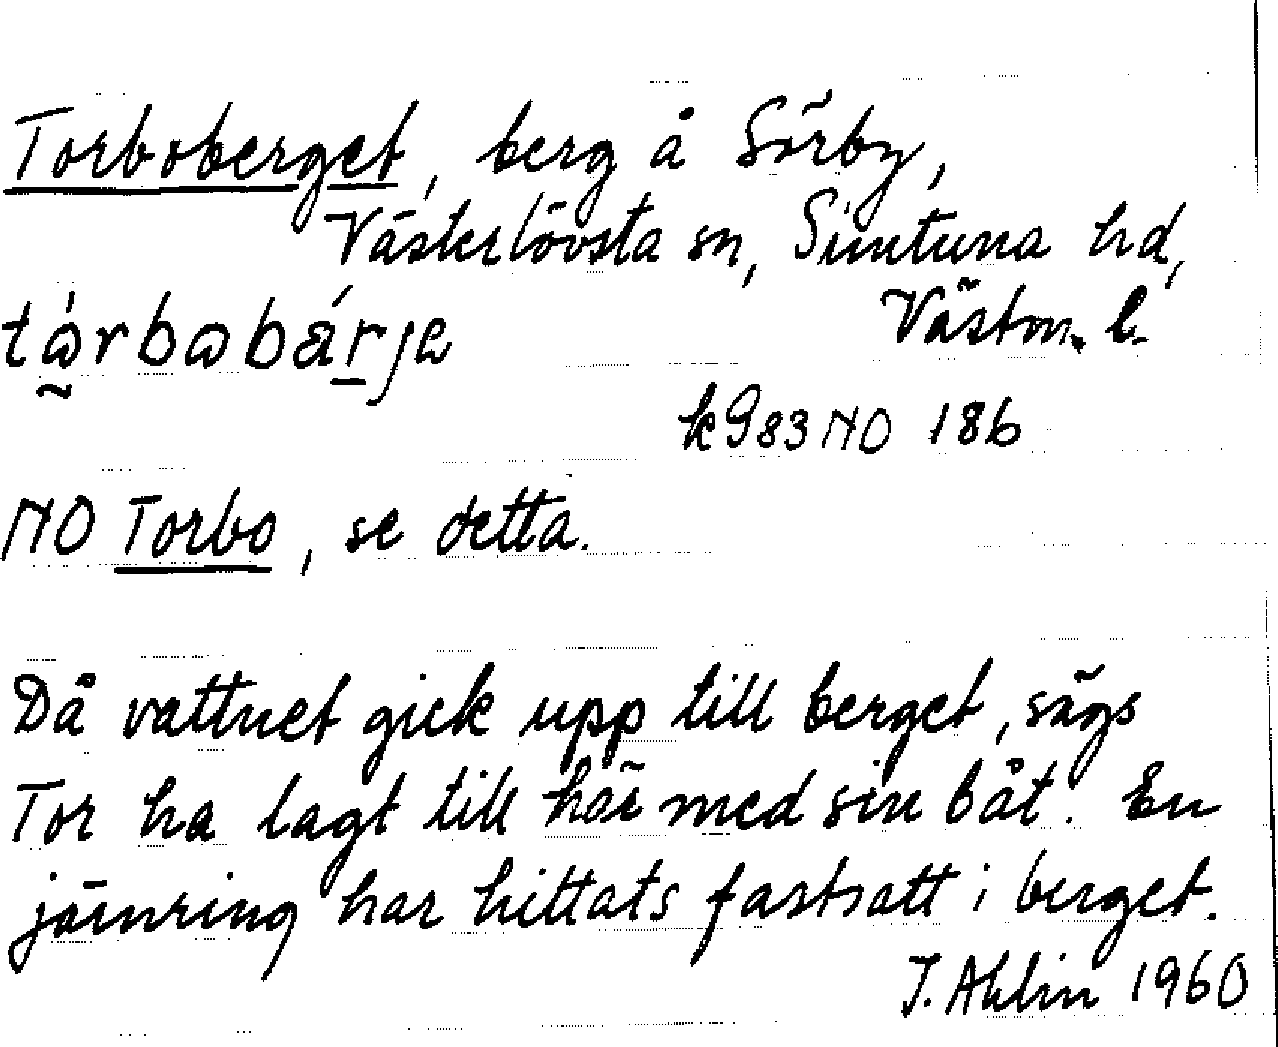 Torboberget, berg å Sörby,
Västerlövsta sn, Simtuna hd,
Västm. l.
tɷ̀rbɷbárjɐ
k 983 NO 186
NO Torbo, se detta.
Då vattnet gick upp till berget, sägs
Tor ha lagt till här med sin båt. En
järnring har hittats fastsatt i berget.
J. Ahlin 1960